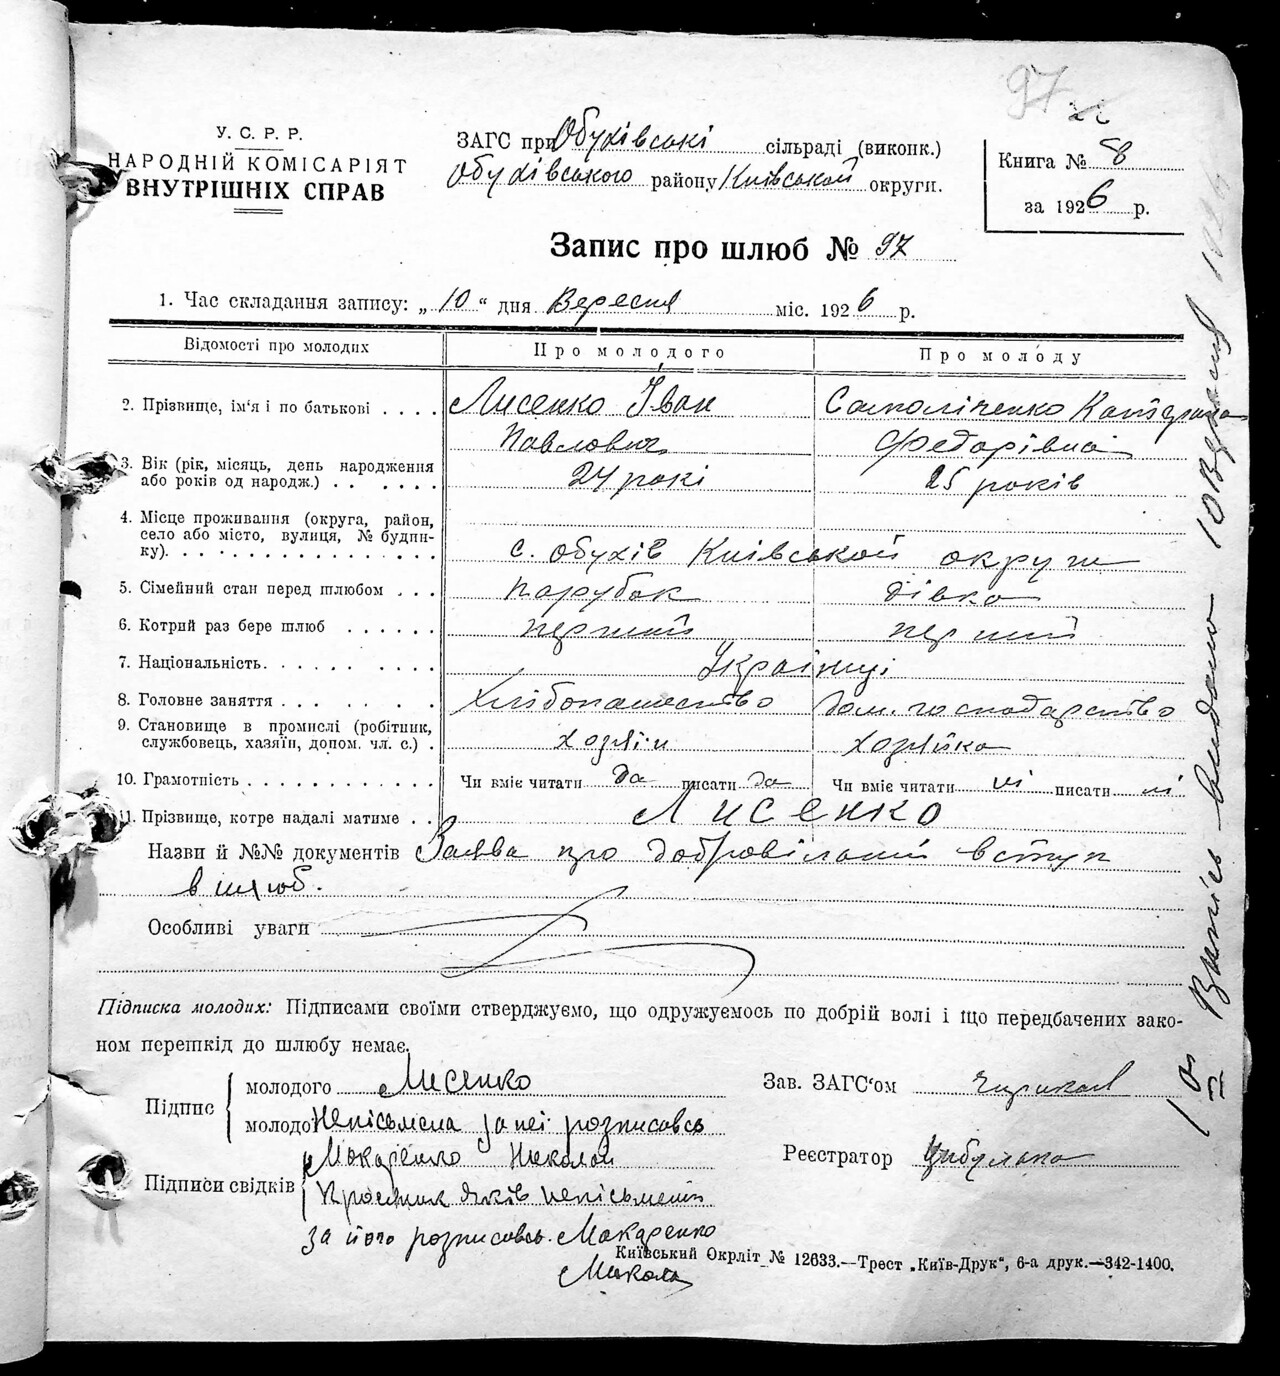 97
У. С. Р. Р.
НАРОДНІЙ КОМІСАРІЯТ
ВНУТРІШНІХ СПРАВ
ЗАГС при Обухівські сільраді (виконк.)
Обухівського району Київської округи.
Книга № 8
за 1926 р.
Запис про шлюб № 97
1. Час складання запису: „10“ дня Вересня міс. 1926 р.
Відомості про молодих
Про молодого
Про молоду
2. Прізвище, ім‘я і по батькові . . . .
Лисенко Іван
Павлович
Самоліченко Катерина
Федорівна
3. Вік (рік, місяць, день народження
або років од народж.) . . . . . .
24 рокі
25 років
4. Місце проживання (округа, район,
село або місто, вулиця, № будин-
ку). . . . . . . . . . . . . . . .
с. Обухів Київської округи
5. Сімейний стан перед шлюбом . . .
парубок
дівка
6. Котрий раз бере шлюб . . . . . .
перший
перший
7. Національність. . . . . . . . . .
Українці
8. Головне заняття . . . . . . . .
Хлібопашество
дом. господарство
9. Становище в промислі (робітник,
службовець, хазяїн, допом. чл. с.) .
хозяїн
хозяйка
10. Грамотність . . . . . . . . . . .
Чи вміє читати да писати да
Чи вміє читати ні писати ні
11. Прізвище, котре надалі матиме . .
Лисенко
Назви й №№ документів Заява про добровільний вступ
в шлюб.
Особливі уваги
Підписка молодих: Підписами своїми стверджуємо, що одружуємось по добрій волі і що передбачених зако-
ном перешкід до шлюбу немає.
Підпис
молодого Лисенко
молодо Непісьмена за неї розписавсь
Макаренко Николай
Підписи свідків
Яків непісьмений
за його розписавсь Макаренко
Микола
Зав. ЗАГС‘ом
Реєстратор Цибулько
Київський Окрліт № 12633.—Трест „Київ-Друк“, 6-а друк.—342-1400.
Випісь видано 10 Вересня 1926